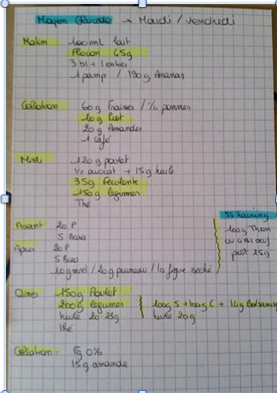 Moyen Glucide → Mardi / Vendredi
Matin
100 mL lait
Flocon 45g
1 pamp / 190g Ananas
Collation
60g Fraises / 1/2 pommes
10g
20g Amandes
1 Café
Midi
120g poulet
1/2 avocat + 15g huile
35g Féculents
150g légumes
Thé
Avant 20P
5 Bcaa
Après 20P
5 Bcaa
10g miel / 20g pruneau / 10g figue séché
SS Training
100g Thon
25g
Diner
150g Poulet
200g légumes
huile 20-25g
Thé
100g S + 100g C + 14g Balsamique
huile 20g
Collation
Fg 0%
15g amande